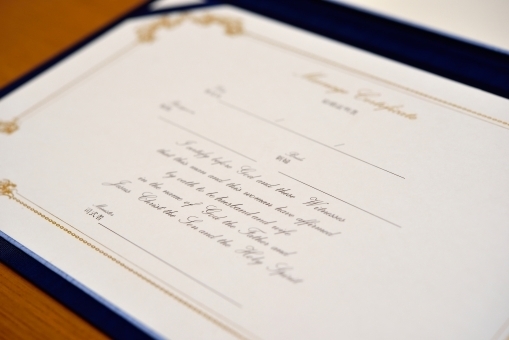 Marriage Certificate
結婚証明書
Date
/ /
Bridegroom
Bride
新婦
I certify before God and these Witnesses
that this man and this woman have affirmed
by oath to be husband and wife
in the name of God the Father and
Jesus Christ the Son and the Holy Spirit
Minister
司式者